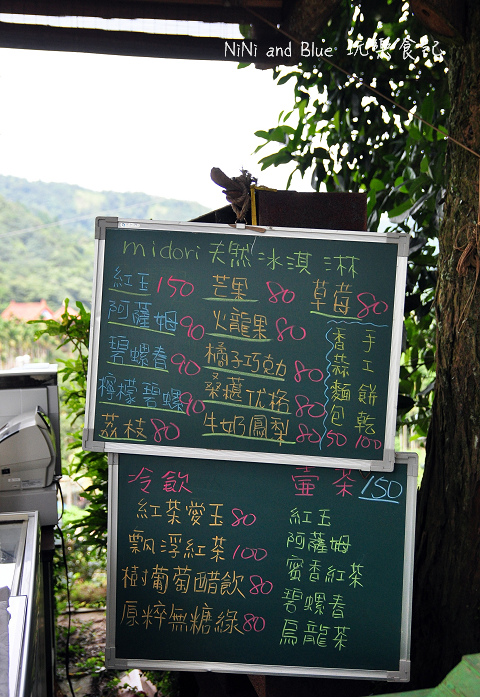 NiNi and Blue 玩樂食記
midori 天然冰淇淋
紅玉 150 芒果 80 草莓 80
阿薩姆 90 火龍果 80
碧螺春 90 橘子巧克力 80
檸檬碧螺 90 桑椹优格 80
荔枝 80 牛奶鳳梨 80
香蒜麵包 50
手工餅乾 100
冷飲
紅茶愛玉 80
飄浮紅茶 100
樹葡萄醋飲 80
原粹無糖綠 80
壺茶 150
紅玉
阿薩姆
蜜香紅茶
碧螺春
烏龍茶